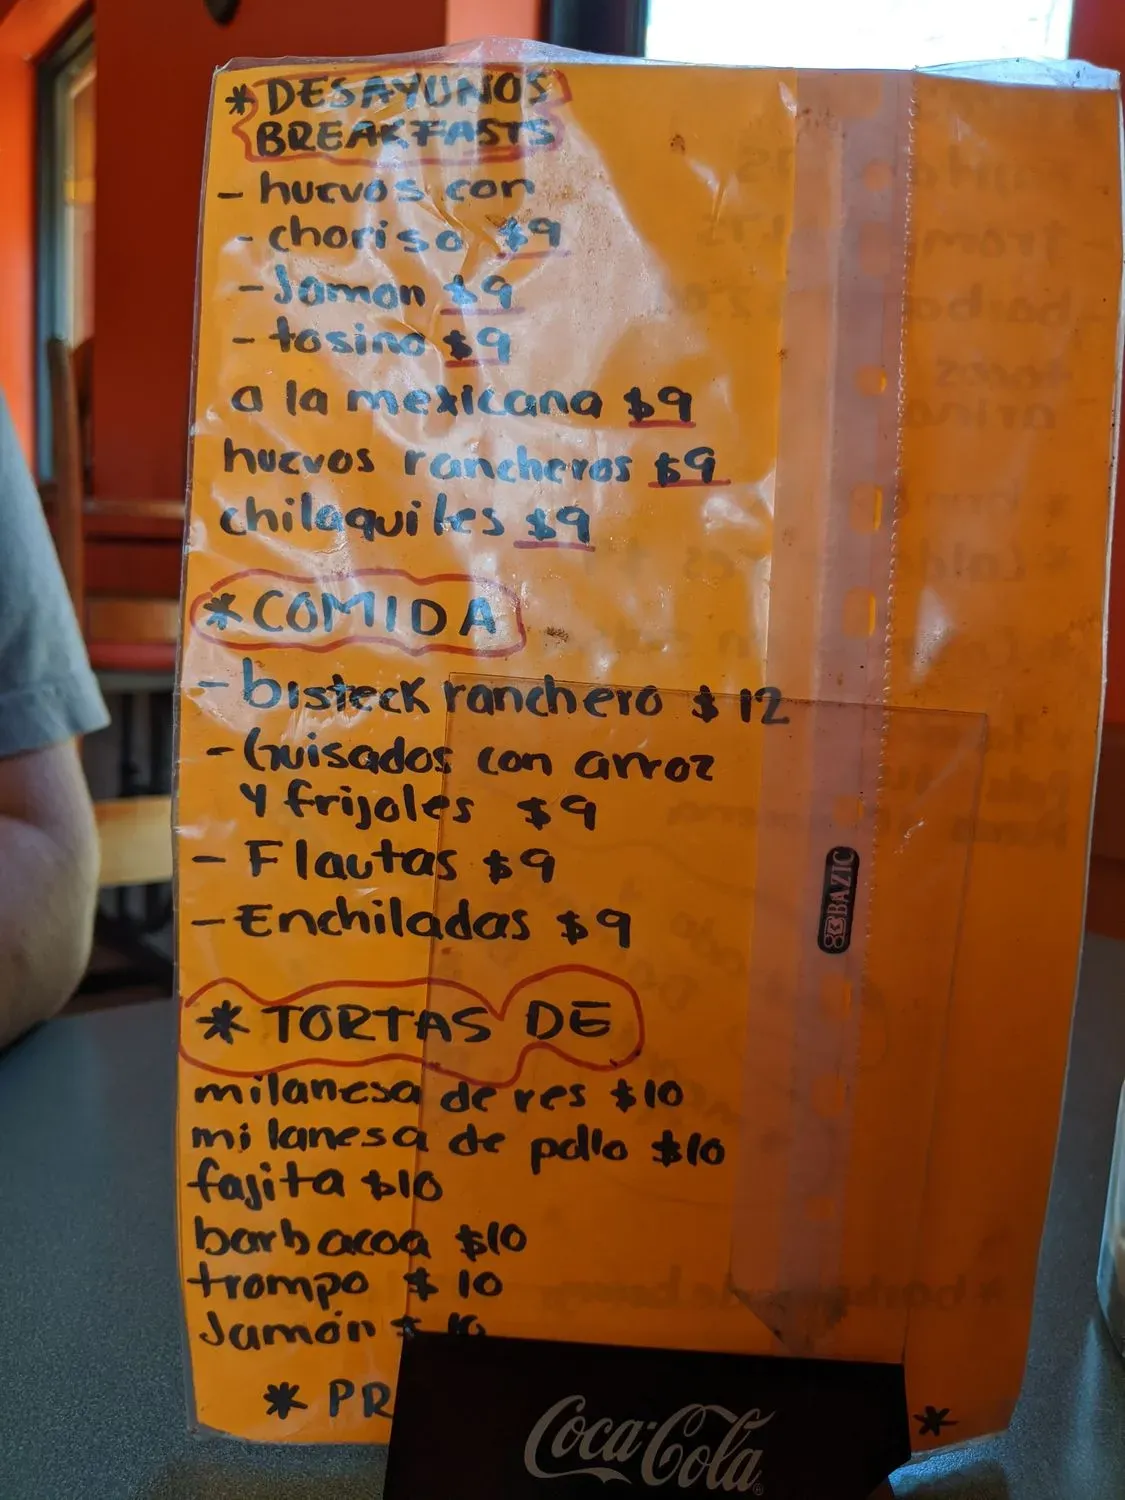 * DESAYUNOS
BREAKFASTS
- huevos con
- choriso $9
- Jamon $9
- tosino $9
a la mexicana $9
huevos rancheros $9
chilaquiles $9
* COMIDA
- bisteck ranchero $12
- Guisados con arroz
y frijoles $9
- Flautas $9
- Enchiladas $9
* TORTAS DE
milanesa de res $10
milanesa de pollo $10
fajita $10
barbacoa $10
trompo $10
Jamón $10
* PR *
BAZIC
Coca-Cola